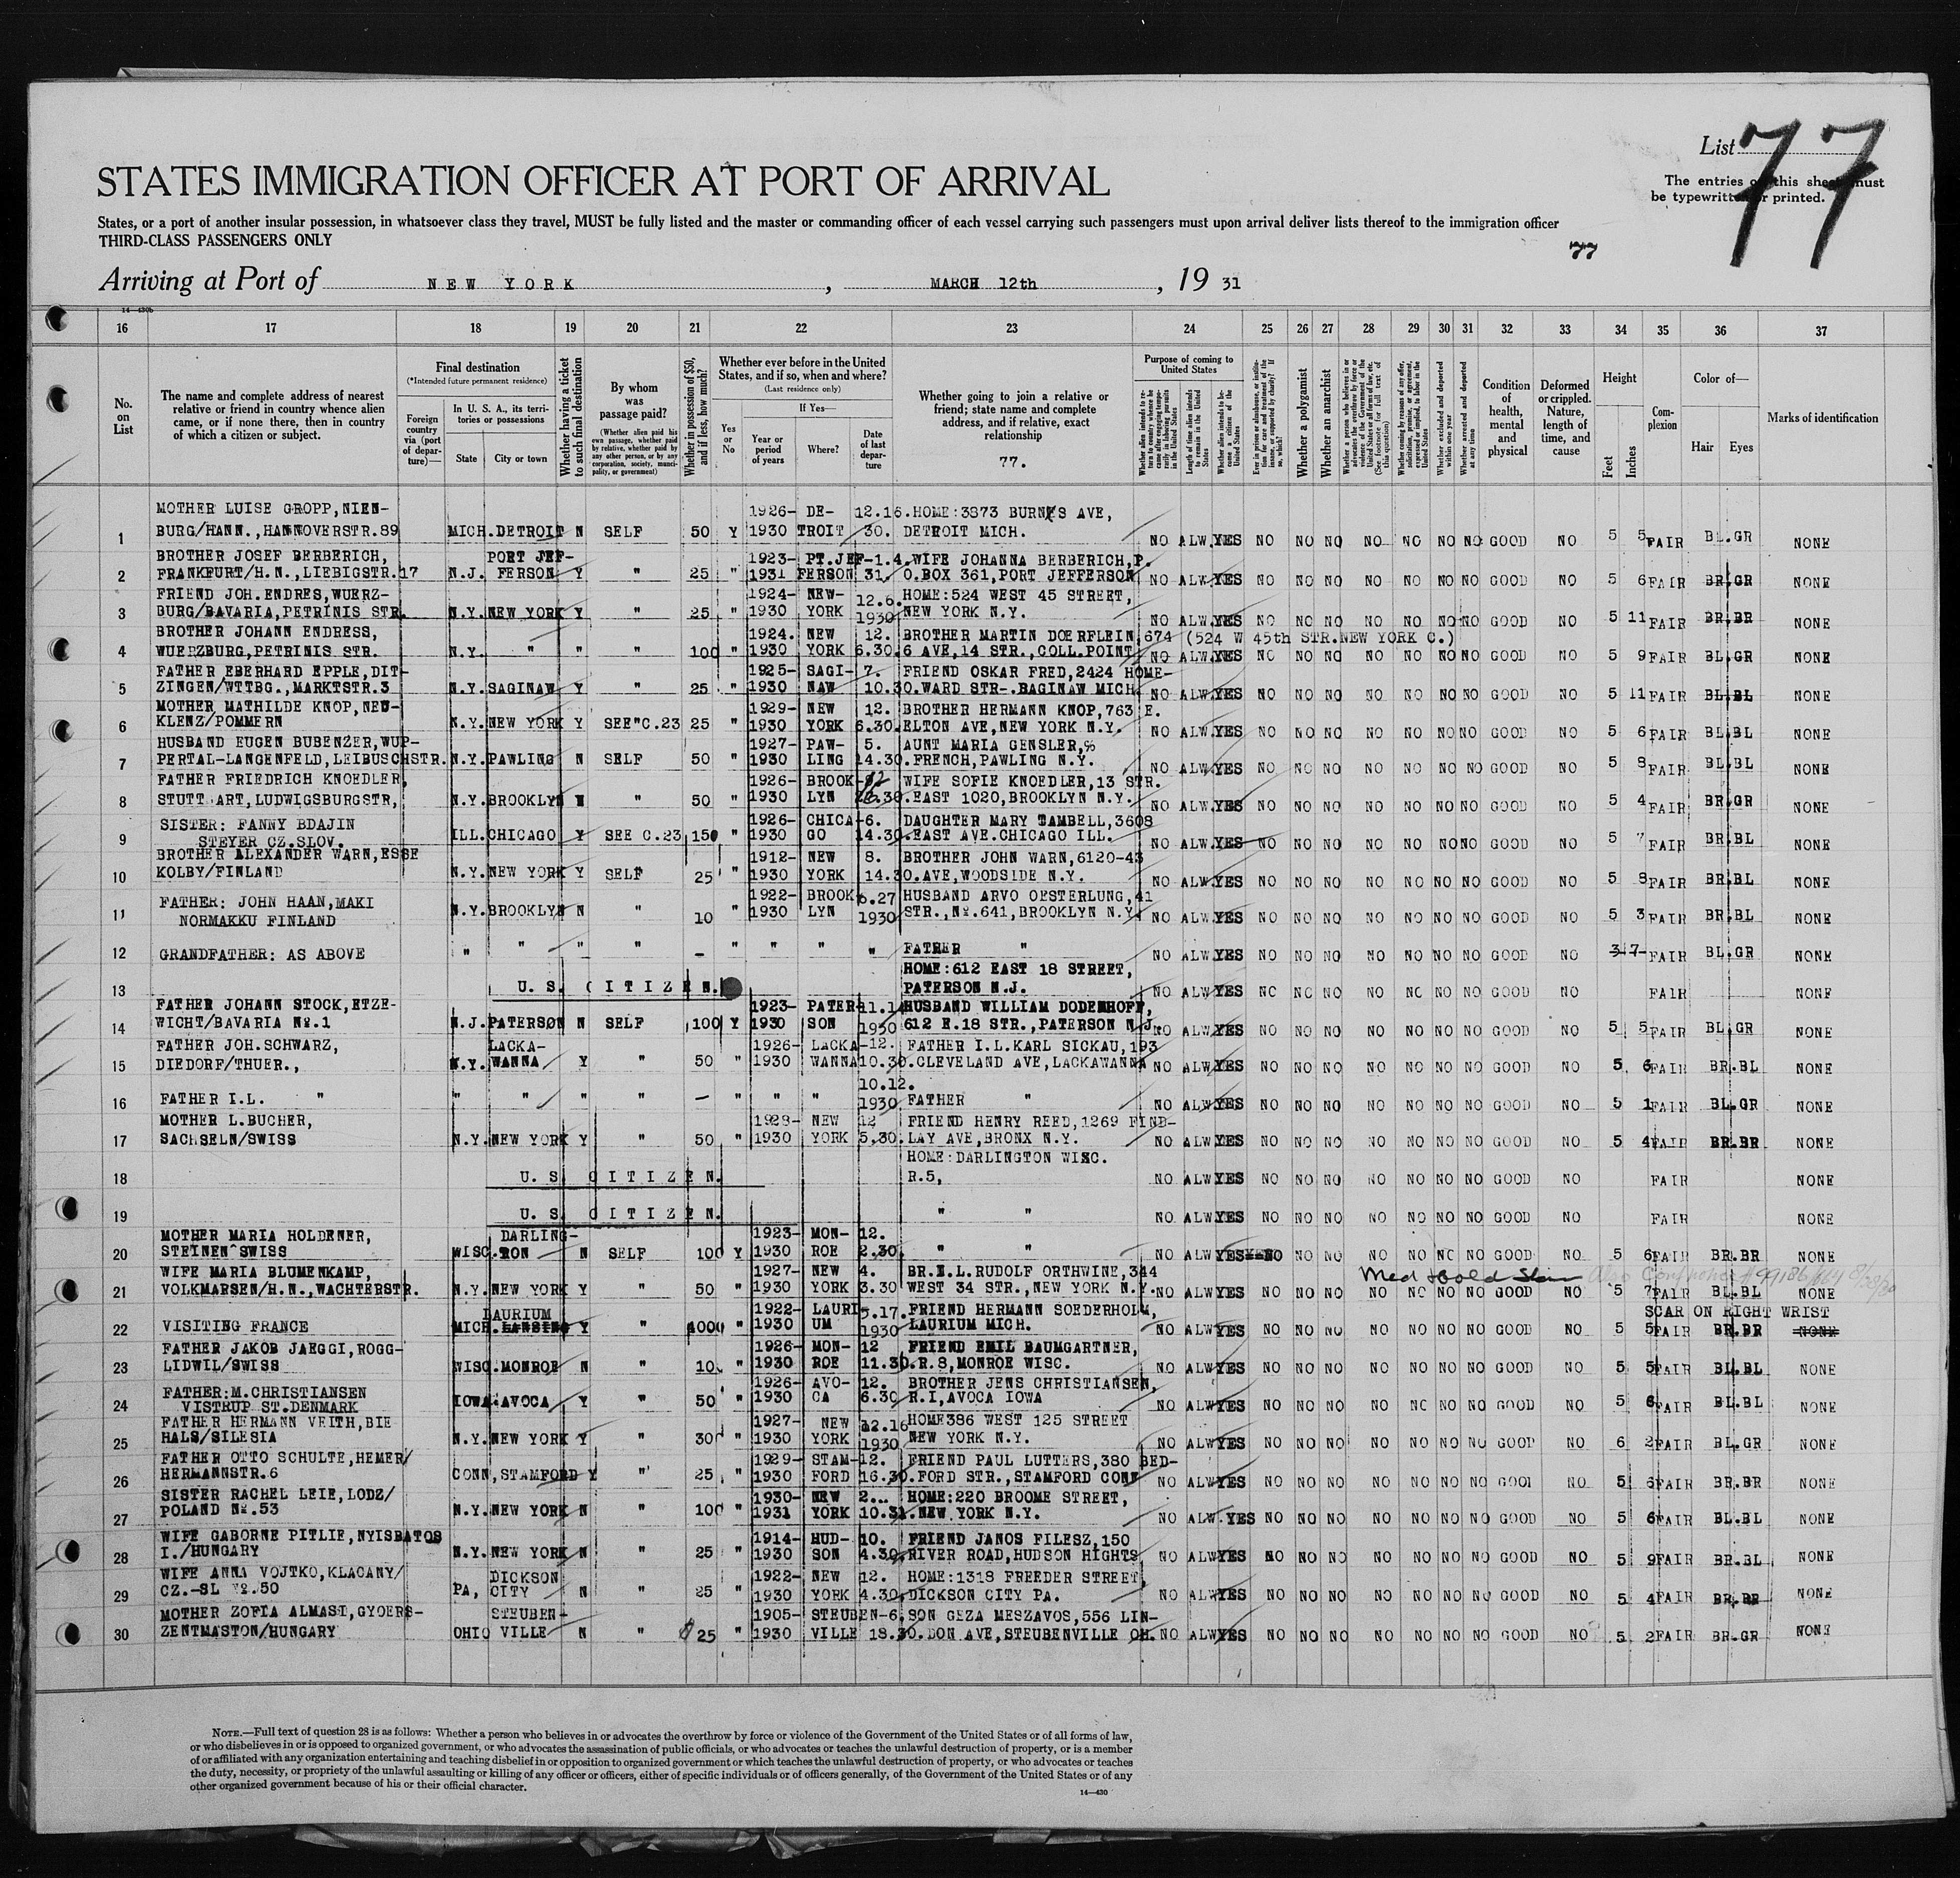 List 77
The entries on this sheet must
be typewritten or printed.
STATES IMMIGRATION OFFICER AT PORT OF ARRIVAL
States, or a port of another insular possession, in whatsoever class they travel, MUST be fully listed and the master or commanding officer of each vessel carrying such passengers must upon arrival deliver lists thereof to the immigration officer
THIRD-CLASS PASSENGERS ONLY
77
Arriving at Port of NEW YORK, MARCH 12th, 19 31
14—430b
16 17 18 19 20 21 22 23 24 25 26 27 28 29 30 31 32 33 34 35 36 37
No. on List
The name and complete address of nearest relative or friend in country whence alien came, or if none there, then in country of which a citizen or subject.
Final destination
(*Intended future permanent residence)
Foreign country via (port of departure)—
In U. S. A., its territories or possessions
State City or town
Whether having a ticket to such final destination
By whom was passage paid?
(Whether alien paid his own passage, whether paid by relative, whether paid by any other person, or by any corporation, society, municipality, or government)
Whether in possession of $50, and if less, how much?
Whether ever before in the United States, and if so, when and where?
(Last residence only)
Yes or No
If Yes—
Year or period of years
Where?
Date of last departure
Whether going to join a relative or friend; state name and complete address, and if relative, exact relationship
77.
Purpose of coming to United States
Length of time alien intends to remain in the United States
Whether alien intends to become a citizen of the United States
Whether a polygamist
Whether an anarchist
Whether excluded and deported within one year
Whether arrested and deported at any time
Condition of health, mental and physical
Deformed or crippled. Nature, length of time, and cause
Height
Feet Inches
Complexion
Color of—
Hair Eyes
Marks of identification
1 MOTHER LUISE GROPP,NIEN-
BURG/HANN.,HANNOVERSTR.89 MICH.DETROIT N SELF 50 Y 1926-1930 DE-TROIT 12.16.30. HOME:3873 BURNS AVE, DETROIT MICH. NO ALW.YES NO NO NO NO NO NO NO GOOD NO 5 5 FAIR BL.GR NONE
2 BROTHER JOSEF BERBERICH,
FRANKFURT/H.N.,LIEBIGSTR.17 N.J. PORT JEF-FERSON Y " 25 " 1923-1931 PT.JEF-FERSON 1.4.31. WIFE JOHANNA BERBERICH,P.O.BOX 361,PORT JEFFERSON NO ALW.YES NO NO NO NO NO NO NO GOOD NO 5 6 FAIR BR.GR NONE
3 FRIEND JOH.ENDRES,WUERZ-
BURG/BAVARIA,PETRINIS STR. N.Y.NEW YORK Y " 25 " 1924-1930 NEW-YORK 12.6.1930 HOME:524 WEST 45 STREET, NEW YORK N.Y. NO ALW.YES NO NO NO NO NO NO NO GOOD NO 5 11 FAIR BR.BR NONE
4 BROTHER JOHANN ENDRESS,
WUERZBURG,PETRINIS STR. N.Y. " " " 100 " 1924.1930 NEW YORK 12.6.30. BROTHER MARTIN DOERFLEIN,674 (524 W 45th STR.NEW YORK C.) 6 AVE,14 STR.,COLL.POINT NO ALW.YES NO NO NO NO NO NO NO GOOD NO 5 9 FAIR BL.GR NONE
5 FATHER EBERHARD EPPLE,DIT-
ZINGEN/WTTBG.,MARKTSTR.3 N.Y.SAGINAW Y " 25 " 1925-1930 SAGI-NAW 7.10.30. FRIEND OSKAR FRED,2424 HOME-WARD STR-.BAGINAW MICH. NO ALW.YES NO NO NO NO NO NO NO GOOD NO 5 11 FAIR BL.BL NONE
6 MOTHER MATHILDE KNOP,NEU-
KLENZ/POMMERN N.Y.NEW YORK Y SEE"C.23 25 " 1929-1930 NEW YORK 12.6.30. BROTHER HERMANN KNOP,763 E. ELTON AVE,NEW YORK N.Y. NO ALW.YES NO NO NO NO NO NO NO GOOD NO 5 6 FAIR BL.BL NONE
7 HUSBAND EUGEN BUBENZER,WUP-
PERTAL-LANGENFELD,LEIBUSCHSTR. N.Y.PAWLING N SELF 50 " 1927-1930 PAW-LING 5.14.30. AUNT MARIA GENSLER,% FRENCH,PAWLING N.Y. NO ALW.YES NO NO NO NO NO NO NO GOOD NO 5 8 FAIR BL.BL NONE
8 FATHER FRIEDRICH KNOEDLER,
STUTT ART,LUDWIGSBURGSTR, N.Y.BROOKLYN N " 50 " 1926-1930 BROOK-LYN WIFE SOFIE KNOEDLER,13 STR. EAST 1020,BROOKLYN N.Y. NO ALW.YES NO NO NO NO NO NO NO GOOD NO 5 4 FAIR BR.GR NONE
9 SISTER: FANNY BDAJIN
STEYER CZ.SLOV. ILL.CHICAGO Y SEE C.23 150 " 1926-1930 CHICA-GO 6.14.30. DAUGHTER MARY TAMBELL,3608 EAST AVE.CHICAGO ILL. NO ALW.YES NO NO NO NO NO NO NO GOOD NO 5 7 FAIR BR.BL NONE
10 BROTHER ALEXANDER WARN,ESSE
KOLBY/FINLAND N.Y.NEW YORK Y SELF 25 " 1912-1930 NEW YORK 8.14.30. BROTHER JOHN WARN,6120-43 AVE,WOODSIDE N.Y. NO ALW.YES NO NO NO NO NO NO NO GOOD NO 5 8 FAIR BR.BL NONE
11 FATHER: JOHN HAAN,MAKI
NORMAKKU FINLAND N.Y.BROOKLYN N " 10 " 1922-1930 BROOK-LYN 6.27 1930 HUSBAND ARVO OESTERLUNG,41 STR.,No.641,BROOKLYN N.Y. NO ALW.YES NO NO NO NO NO NO NO GOOD NO 5 3 FAIR BR.BL NONE
12 GRANDFATHER: AS ABOVE " " " " - " " " " FATHER " NO ALW.YES NO NO NO NO NO NO NO GOOD NO 3 7 FAIR BL.GR NONE
13 U. S. CITIZEN. HOME:612 EAST 18 STREET, PATERSON N.J. NO ALW.YES NO NO NO NO NO NO NO GOOD NO FAIR NONE
14 FATHER JOHANN STOCK,ETZE-
WICHT/BAVARIA No.1 N.J.PATERSON N SELF 100 Y 1923-1930 PATER-SON 11.1 1930 HUSBAND WILLIAM DODENHOFF, 612 E.18 STR.,PATERSON N.J. NO ALW.YES NO NO NO NO NO NO NO GOOD NO 5 5 FAIR BL.GR NONE
15 FATHER JOH.SCHWARZ,
DIEDORF/THUER., N.Y. LACKA-WANNA Y " 50 " 1926-1930 LACKA-WANNA 12.10.30. FATHER I.L.KARL SICKAU,193 CLEVELAND AVE,LACKAWANNA NO ALW.YES NO NO NO NO NO NO NO GOOD NO 5 6 FAIR BR.BL NONE
16 FATHER I.L. " " " " " - " " " 10.12.1930 FATHER " NO ALW.YES NO NO NO NO NO NO NO GOOD NO 5 1 FAIR BL.GR NONE
17 MOTHER L.BUCHER,
SACHSELN/SWISS N.Y.NEW YORK Y " 50 " 1928-1930 NEW YORK 12 5,30. FRIEND HENRY REED,1269 FIND-LAY AVE,BRONX N.Y. NO ALW.YES NO NO NO NO NO NO NO GOOD NO 5 4 FAIR BR.BR NONE
18 U. S. CITIZEN. HOME:DARLINGTON WISC. R.5, NO ALW.YES NO NO NO NO NO NO NO GOOD NO FAIR NONE
19 U. S. CITIZEN. " " NO ALW.YES NO NO NO NO NO NO NO GOOD NO FAIR NONE
20 MOTHER MARIA HOLDENER,
STEINEN SWISS WISC. DARLING-TON N SELF 100 Y 1923-1930 MON-ROE 12.2.30. " " NO ALW.YES NO NO NO NO NO NO NO GOOD NO 5 6 FAIR BR.BR NONE
21 WIFE MARIA BLUMENKAMP,
VOLKMARSEN/H.N.,WACHTERSTR. N.Y.NEW YORK Y " 50 " 1927-1930 NEW YORK 4.3.30 BR.I.L.RUDOLF ORTHWINE,344 WEST 34 STR.,NEW YORK N.Y. NO ALW.YES NO NO NO NO NO NO NO GOOD NO 5 7 FAIR BL.BL NONE
22 VISITING FRANCE MICH. LAURIUM LANSING Y " 1000 " 1922-1930 LAURI-UM 5.17.1930 FRIEND HERMANN SOEDERHOLM, LAURIUM MICH. NO ALW.YES NO NO NO NO NO NO NO GOOD NO 5 5 FAIR BR.BR SCAR ON RIGHT WRIST NONE
23 FATHER JAKOB JAEGGI,ROGG-
LIDWIL/SWISS WISC.MONROE N " 10 " 1926-1930 MON-ROE 12 11.30. FRIEND EMIL BAUMGARTNER, R.8,MONROE WISC. NO ALW.YES NO NO NO NO NO NO NO GOOD NO 5 5 FAIR BL.BL NONE
24 FATHER:M.CHRISTIANSEN
VISTRUP ST.DENMARK IOWA.AVOCA Y " 50 " 1926-1930 AVO-CA 12.6.30 BROTHER JENS CHRISTIANSEN, R.I,AVOCA IOWA NO ALW.YES NO NO NO NO NO NO NO GOOD NO 5 6 FAIR BL.BL NONE
25 FATHER HERMANN VEITH,BIE
HALS/SILESIA N.Y.NEW YORK Y " 300 " 1927-1930 NEW YORK 12.16 1930 HOME386 WEST 125 STREET NEW YORK N.Y. NO ALW.YES NO NO NO NO NO NO NO GOOD NO 6 2 FAIR BL.GR NONE
26 FATHER OTTO SCHULTE,HEMER/
HERMANNSTR.6 CONN,STAMFORD Y " 25 " 1929-1930 STAM-FORD 12.16.30. FRIEND PAUL LUTTERS,380 BED-FORD STR.,STAMFORD CONN NO ALW.YES NO NO NO NO NO NO NO GOOD NO 5 6 FAIR BR.BR NONE
27 SISTER RACHEL LEIE,LODZ/
POLAND No.53 N.Y.NEW YORK N " 100 " 1930-1931 NEW YORK 2...10.31. HOME:220 BROOME STREET, NEW YORK N.Y. NO ALW.YES NO NO NO NO NO NO NO GOOD NO 5 6 FAIR BL.BL NONE
28 WIFE GABORNE PITLIE,NYISBATOS
I./HUNGARY N.Y.NEW YORK N " 25 " 1914-1930 HUD-SON 10.4.30. FRIEND JANOS FILESZ,150 RIVER ROAD,HUDSON HIGHTS NO ALW.YES NO NO NO NO NO NO NO GOOD NO 5 9 FAIR BR.BL NONE
29 WIFE ANNA VOJTKO,KLACANY/
CZ.-SL No.50 PA, DICKSON CITY N " 25 " 1922-1930 NEW YORK 12.4.30. HOME:1318 FREEDER STREET, DICKSON CITY PA. NO ALW.YES NO NO NO NO NO NO NO GOOD NO 5 4 FAIR BR.BR NONE
30 MOTHER ZOFIA ALMASI,GYOERS-
ZENTMASTON/HUNGARY OHIO STEUBEN-VILLE N " $ 25 " 1905-1930 STEUBEN-VILLE 6.18.30. SON GEZA MESZAVOS,556 LIN-DON AVE,STEUBENVILLE OH. NO ALW.YES NO NO NO NO NO NO NO GOOD NO 5 2 FAIR BR.GR NONE
NOTE.—Full text of question 28 is as follows: Whether a person who believes in or advocates the overthrow by force or violence of the Government of the United States or of all forms of law,
or who disbelieves in or is opposed to organized government, or who advocates the assassination of public officials, or who advocates or teaches the unlawful destruction of property, or is a member
of or affiliated with any organization entertaining and teaching disbelief in or opposition to organized government or which teaches the unlawful destruction of property, or who advocates or teaches
the duty, necessity, or propriety of the unlawful assaulting or killing of any officer or officers, either of specific individuals or of officers generally, of the Government of the United States or of any
other organized government because of his or their official character.
14—430